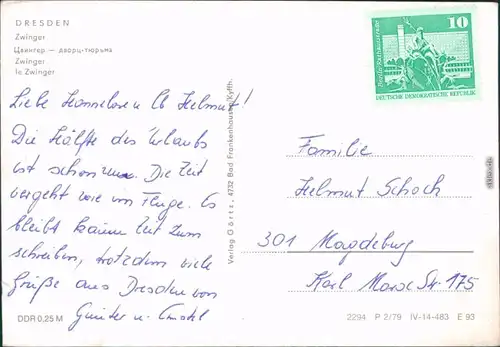 DRESDEN
Zwinger
Цвингер — дворц-тюрьма
Zwinger
le Zwinger
Liebe Hannelore u lb Helmut!
Die Hälfte des Urlaubs
ist schon um. Die Zeit
vergeht wie im Fluge. Es
bleibt kaum Zeit zum
schreiben, trotzdem viele
Grüße aus Dresden von
Günter u.
DDR 0,25 M
Verlag Görtz, 4732 Bad Frankenhausen/Kyffh.
10
DEUTSCHE DEMOKRATISCHE REPUBLIK
Familie
Helmut Schoch
301 Magdeburg
Karl Marx Str. 175
2294 P 2/79 IV-14-483 E 93